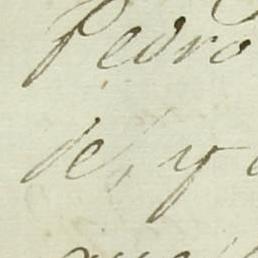 Pedro
de, y